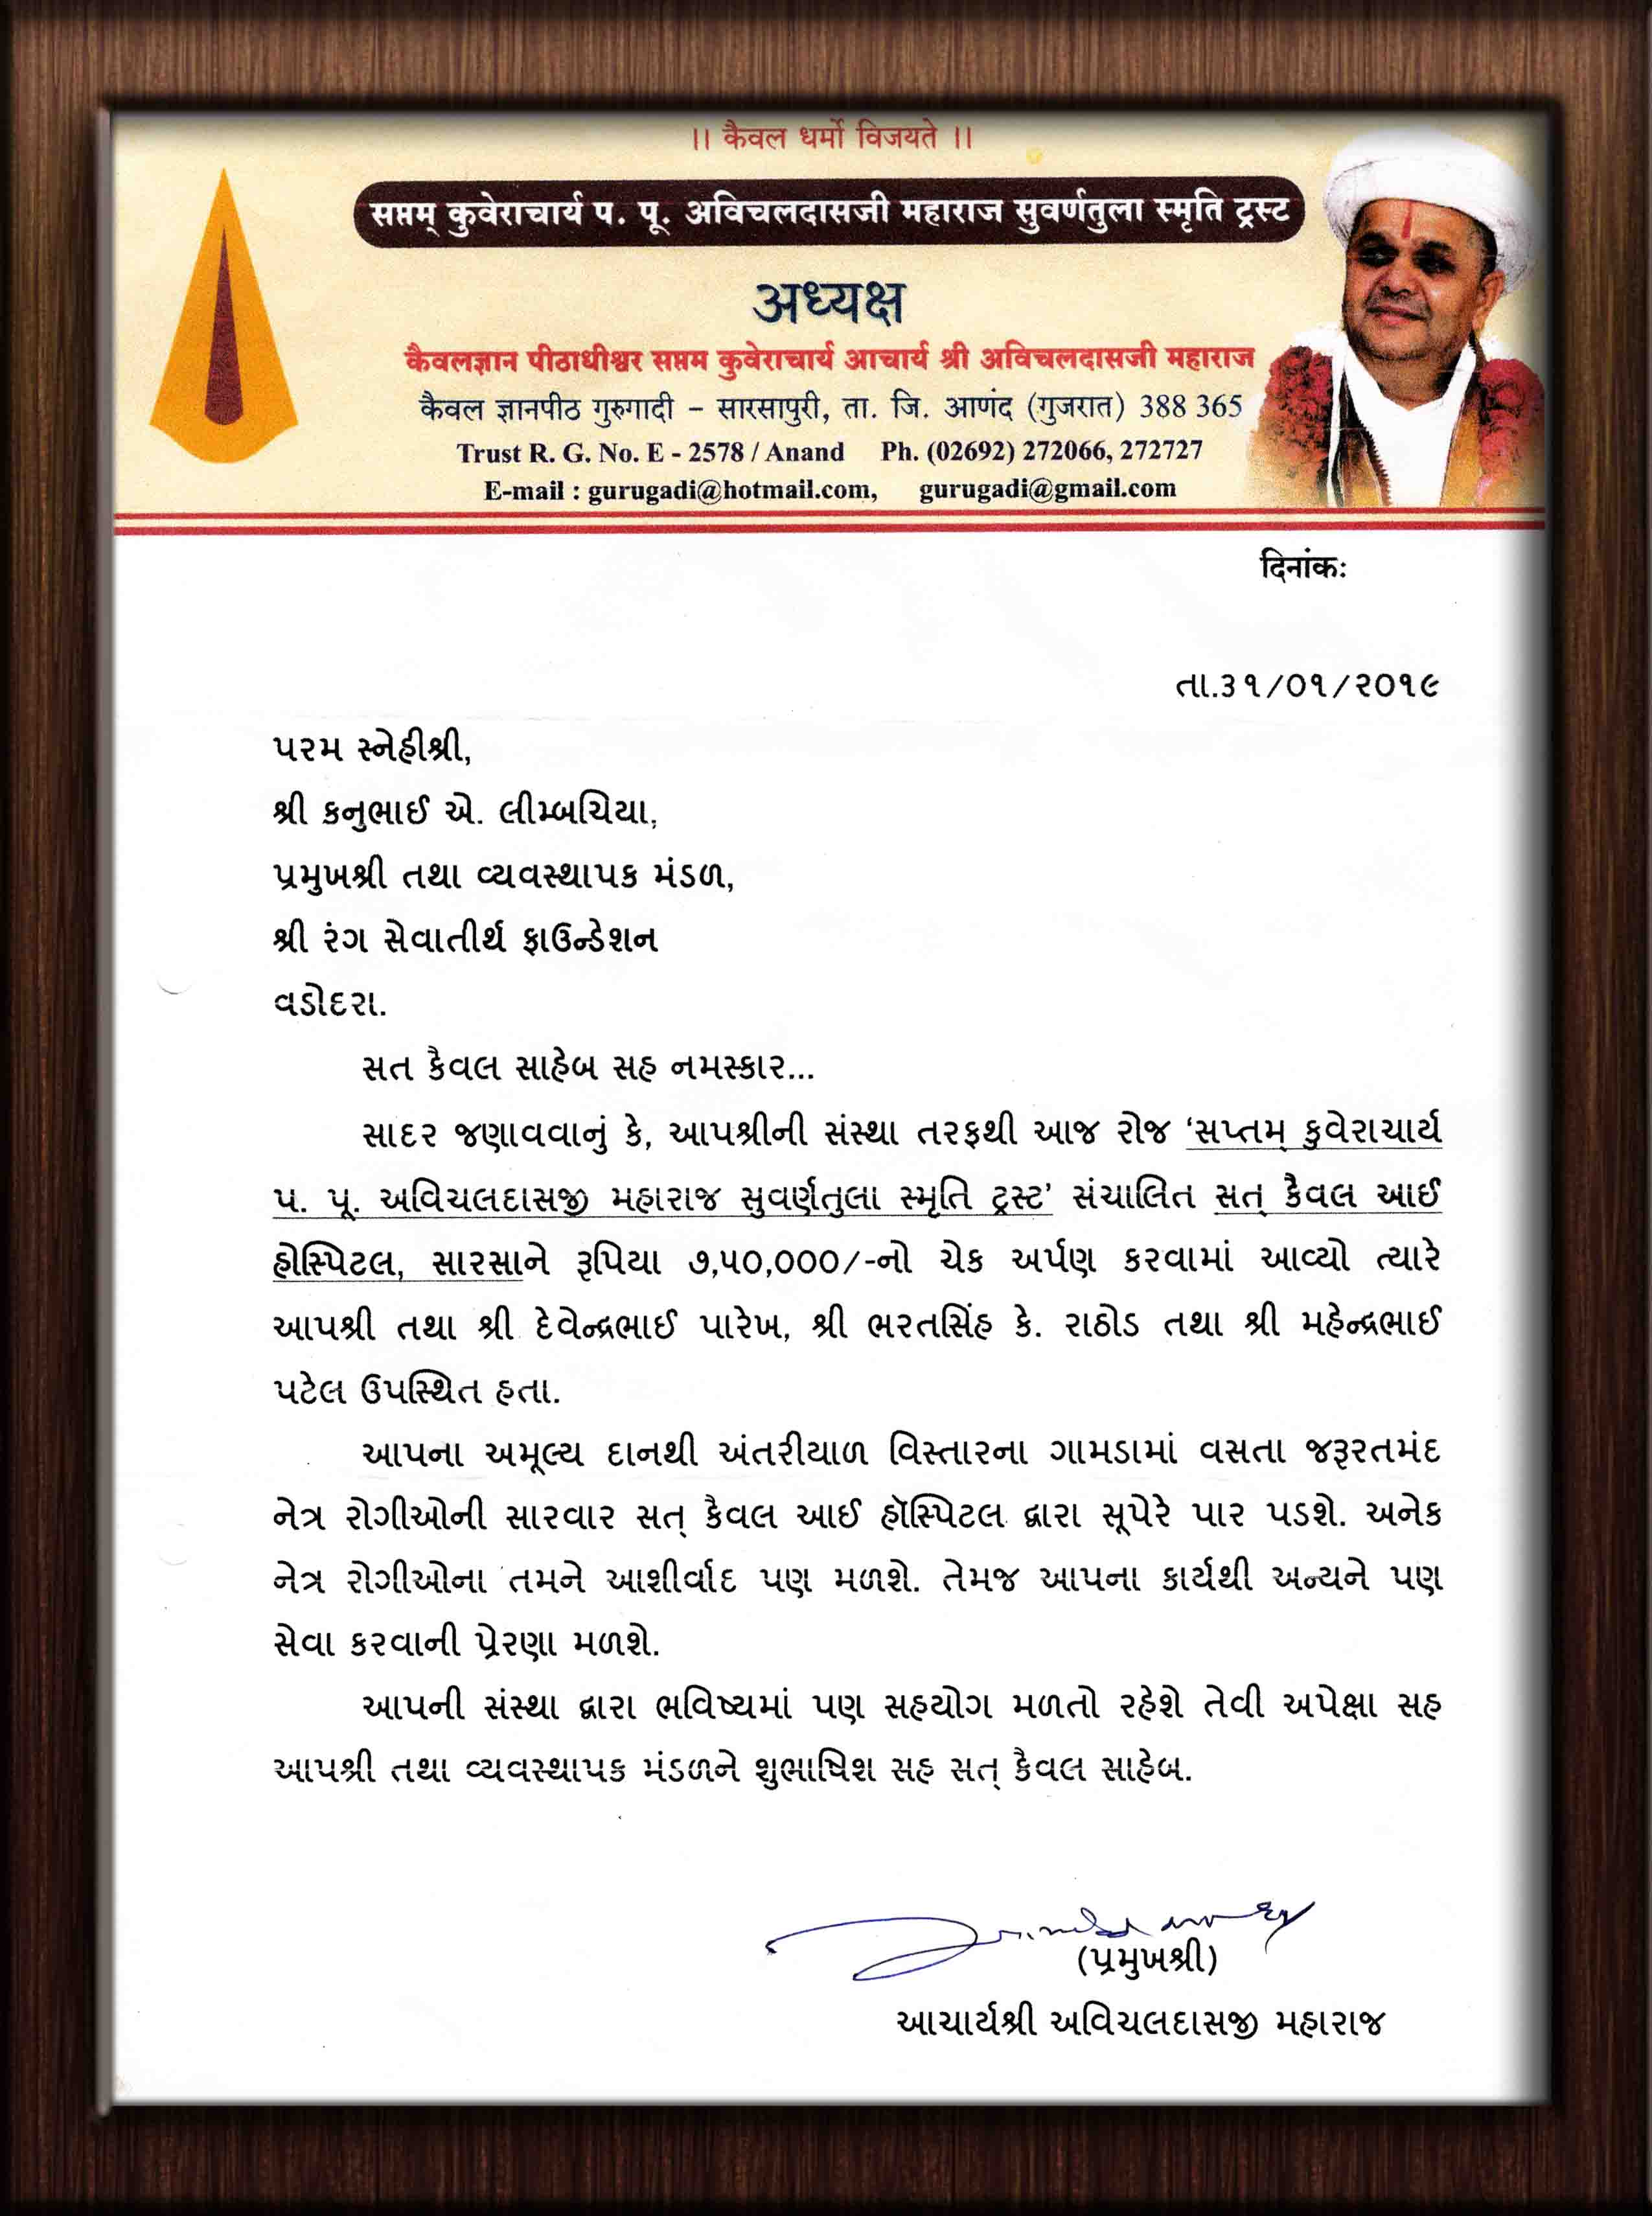 ।। कैवल धर्मो विजयते ।।
सप्तम् कुवेराचार्य प. पू. अविचलदासजी महाराज सुवर्णतुला स्मृति ट्रस्ट
अध्यक्ष
कैवलज्ञान पीठाधीश्वर सप्तम कुवेराचार्य आचार्य श्री अविचलदासजी महाराज
कैवल ज्ञानपीठ गुरुगादी – सारसापुरी, ता. जि. आणंद (गुजरात) 388 365
Trust R. G. No. E - 2578 / Anand Ph. (02692) 272066, 272727
E-mail : gurugadi@hotmail.com, gurugadi@gmail.com
दिनांकः
તા.૩૧/૦૧/૨૦૧૯
પરમ સ્નેહીશ્રી,
શ્રી કનુભાઈ એ. લીમ્બચિયા,
પ્રમુખશ્રી તથા વ્યવસ્થાપક મંડળ,
શ્રી રંગ સેવાતીર્થ ફાઉન્ડેશન
વડોદરા.
સત કૈવલ સાહેબ સહ નમસ્કાર...
સાદર જણાવવાનું કે, આપશ્રીની સંસ્થા તરફથી આજ રોજ ‘સપ્તમ્ કુવેરાચાર્ય
પ. પૂ. અવિચલદાસજી મહારાજ સુવર્ણતુલા સ્મૃતિ ટ્રસ્ટ’ સંચાલિત સત્ કૈવલ આઈ
હોસ્પિટલ, સારસાને રૂપિયા ૭,૫૦,૦૦૦/-નો ચેક અર્પણ કરવામાં આવ્યો ત્યારે
આપશ્રી તથા શ્રી દેવેન્દ્રભાઈ પારેખ, શ્રી ભરતસિંહ કે. રાઠોડ તથા શ્રી મહેન્દ્રભાઈ
પટેલ ઉપસ્થિત હતા.
આપના અમૂલ્ય દાનથી અંતરીયાળ વિસ્તારના ગામડામાં વસતા જરૂરતમંદ
નેત્ર રોગીઓની સારવાર સત્ કૈવલ આઈ હૉસ્પિટલ દ્વારા સૂપેરે પાર પડશે. અનેક
નેત્ર રોગીઓના તમને આશીર્વાદ પણ મળશે. તેમજ આપના કાર્યથી અન્યને પણ
સેવા કરવાની પ્રેરણા મળશે.
આપની સંસ્થા દ્વારા ભવિષ્યમાં પણ સહયોગ મળતો રહેશે તેવી અપેક્ષા સહ
આપશ્રી તથા વ્યવસ્થાપક મંડળને શુભાષિશ સહ સત્ કૈવલ સાહેબ.
(પ્રમુખશ્રી)
આચાર્યશ્રી અવિચલદાસજી મહારાજ